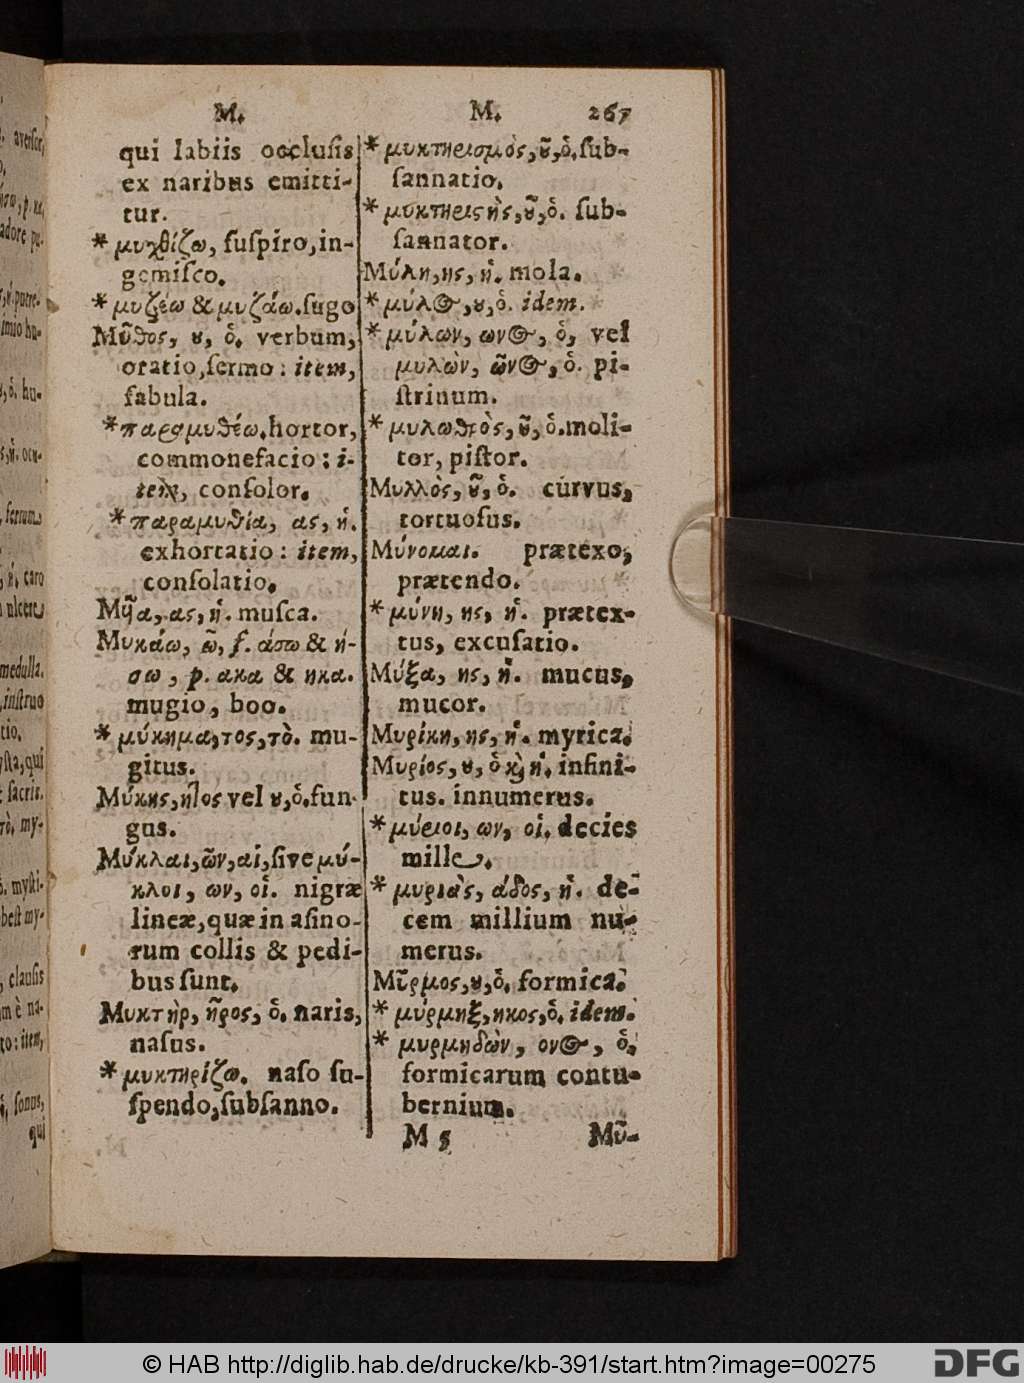 M.
qui labiis occlusis
ex naribus emitti-
tur.
* μυχθίζω, ſuſpiro, in-
gemiſco.
* μυζέω & μυζάω. ſugo
Μῦθος, ȣ, ὁ. verbum,
oratio, ſermo: item,
fabula.
* παραμυθέω. hortor,
commonefacio: i-
tem, conſolor.
* παραμυθία, ας, ἡ.
exhortatio: item,
conſolatio.
Μῦα, ας, ἡ. muſca.
Μυκάω, ῶ, f. άσω & ή-
σω, p. ακα & ηκα.
mugio, boo.
* μύκημα, τος, τὸ. mu-
gitus.
Μύκης, ητος vel ȣ, ὁ. fun-
gus.
Μύκλαι, ῶν, αἱ, ſive μύ-
κλοι, ων, οἱ. nigræ
lineæ, quæ in aſino-
rum collis & pedi-
bus ſunt.
Μυκτὴρ, ῆρος, ὁ. naris,
naſus.
* μυκτηρίζω. naſo ſu-
ſpendo, ſubſanno.
M. 267
* μυκτηρισμὸς, ȣ̃, ὁ. ſub-
ſannatio.
* μυκτηριςὴς, ȣ̃, ὁ. ſub-
ſannator.
Μύλη, ης, ἡ. mola.
* μύλος, ȣ, ὁ. idem.
* μύλων, ωνος, ὁ, vel
μυλὼν, ῶνος, ὁ. pi-
ſtrinum.
* μυλωθρὸς, ȣ̃, ὁ. moli-
tor, piſtor.
Μυλλὸς, ȣ̃, ὁ. curvus,
tortuoſus.
Μύνομαι. prætexo,
prætendo.
* μύνη, ης, ἡ. prætex-
tus, excuſatio.
Μύξα, ης, ἡ. mucus,
mucor.
Μυρίκη, ης, ἡ. myrica.
Μυρίος, ȣ, ὁ ϗ ἡ. infini-
tus. innumerus.
* μύριοι, ων, οἱ. decies
mille.
* μυριὰς, άδος, ἡ. de-
cem millium nu-
merus.
Μῦρμος, ȣ, ὁ. formica.
* μύρμηξ, ηκος, ὁ. idem.
* μυρμηδὼν, ονος, ὁ.
formicarum contu-
bernium.
M 5 Μῦ-
© HAB http://diglib.hab.de/drucke/kb-391/start.htm?image=00275
DFG